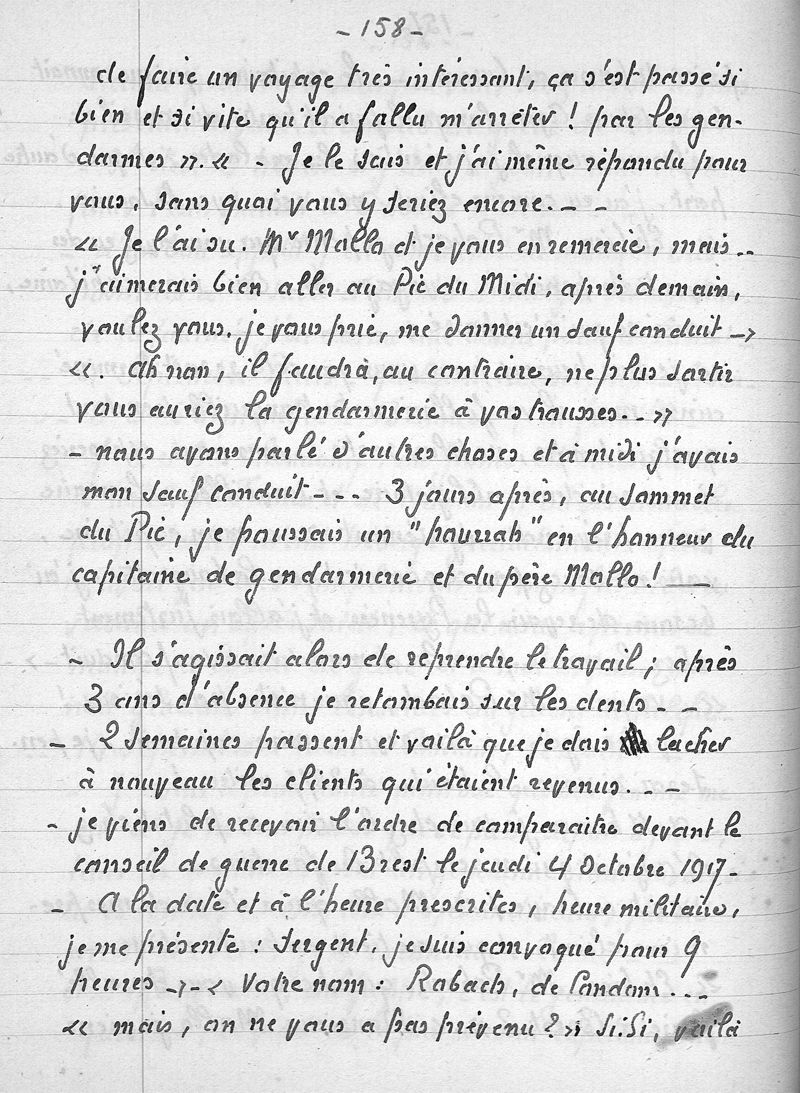 - 158 -
de faire un voyage très intéressant, ça s'est passé si
bien et si vite qu'il a fallu m'arrêter ! par les gen-
darmes ». « - Je le sais et j'ai même répondu pour
vous, sans quoi vous y seriez encore. - -
« Je l'ai su. Mr Mallo et je vous en remercie, mais..
j'aimerais bien aller au Pic du Midi, après demain,
voulez vous, je vous prie, me donner un sauf conduit ->
«. Ah non, il faudra, au contraire, ne plus sortir
vous auriez la gendarmerie à vos trousses. . »
- nous avons parlé d'autres choses et à midi j'avais
mon sauf conduit - - - 3 jours après, au sommet
du Pic, je poussais un "hourrah" en l'honneur du
capitaine de gendarmerie et du père Mallo ! —
- Il s'agissait alors de reprendre le travail ; après
3 ans d'absence je retombais sur les dents - -
- 2 semaines passent et voilà que je dois lacher
à nouveau les clients qui étaient revenus. - -
- je viens de recevoir l'ordre de comparaitre devant le
conseil de guerre de Brest le jeudi 4 Octobre 1917 -
- A la date et à l'heure prescrites, heure militaire,
je me présente : Sergent, je suis convoqué pour 9
heures -> - < Votre nom : Robach, de Landom . . .
« mais, on ne vous a pas prévenu ? » Si. Si, voilà